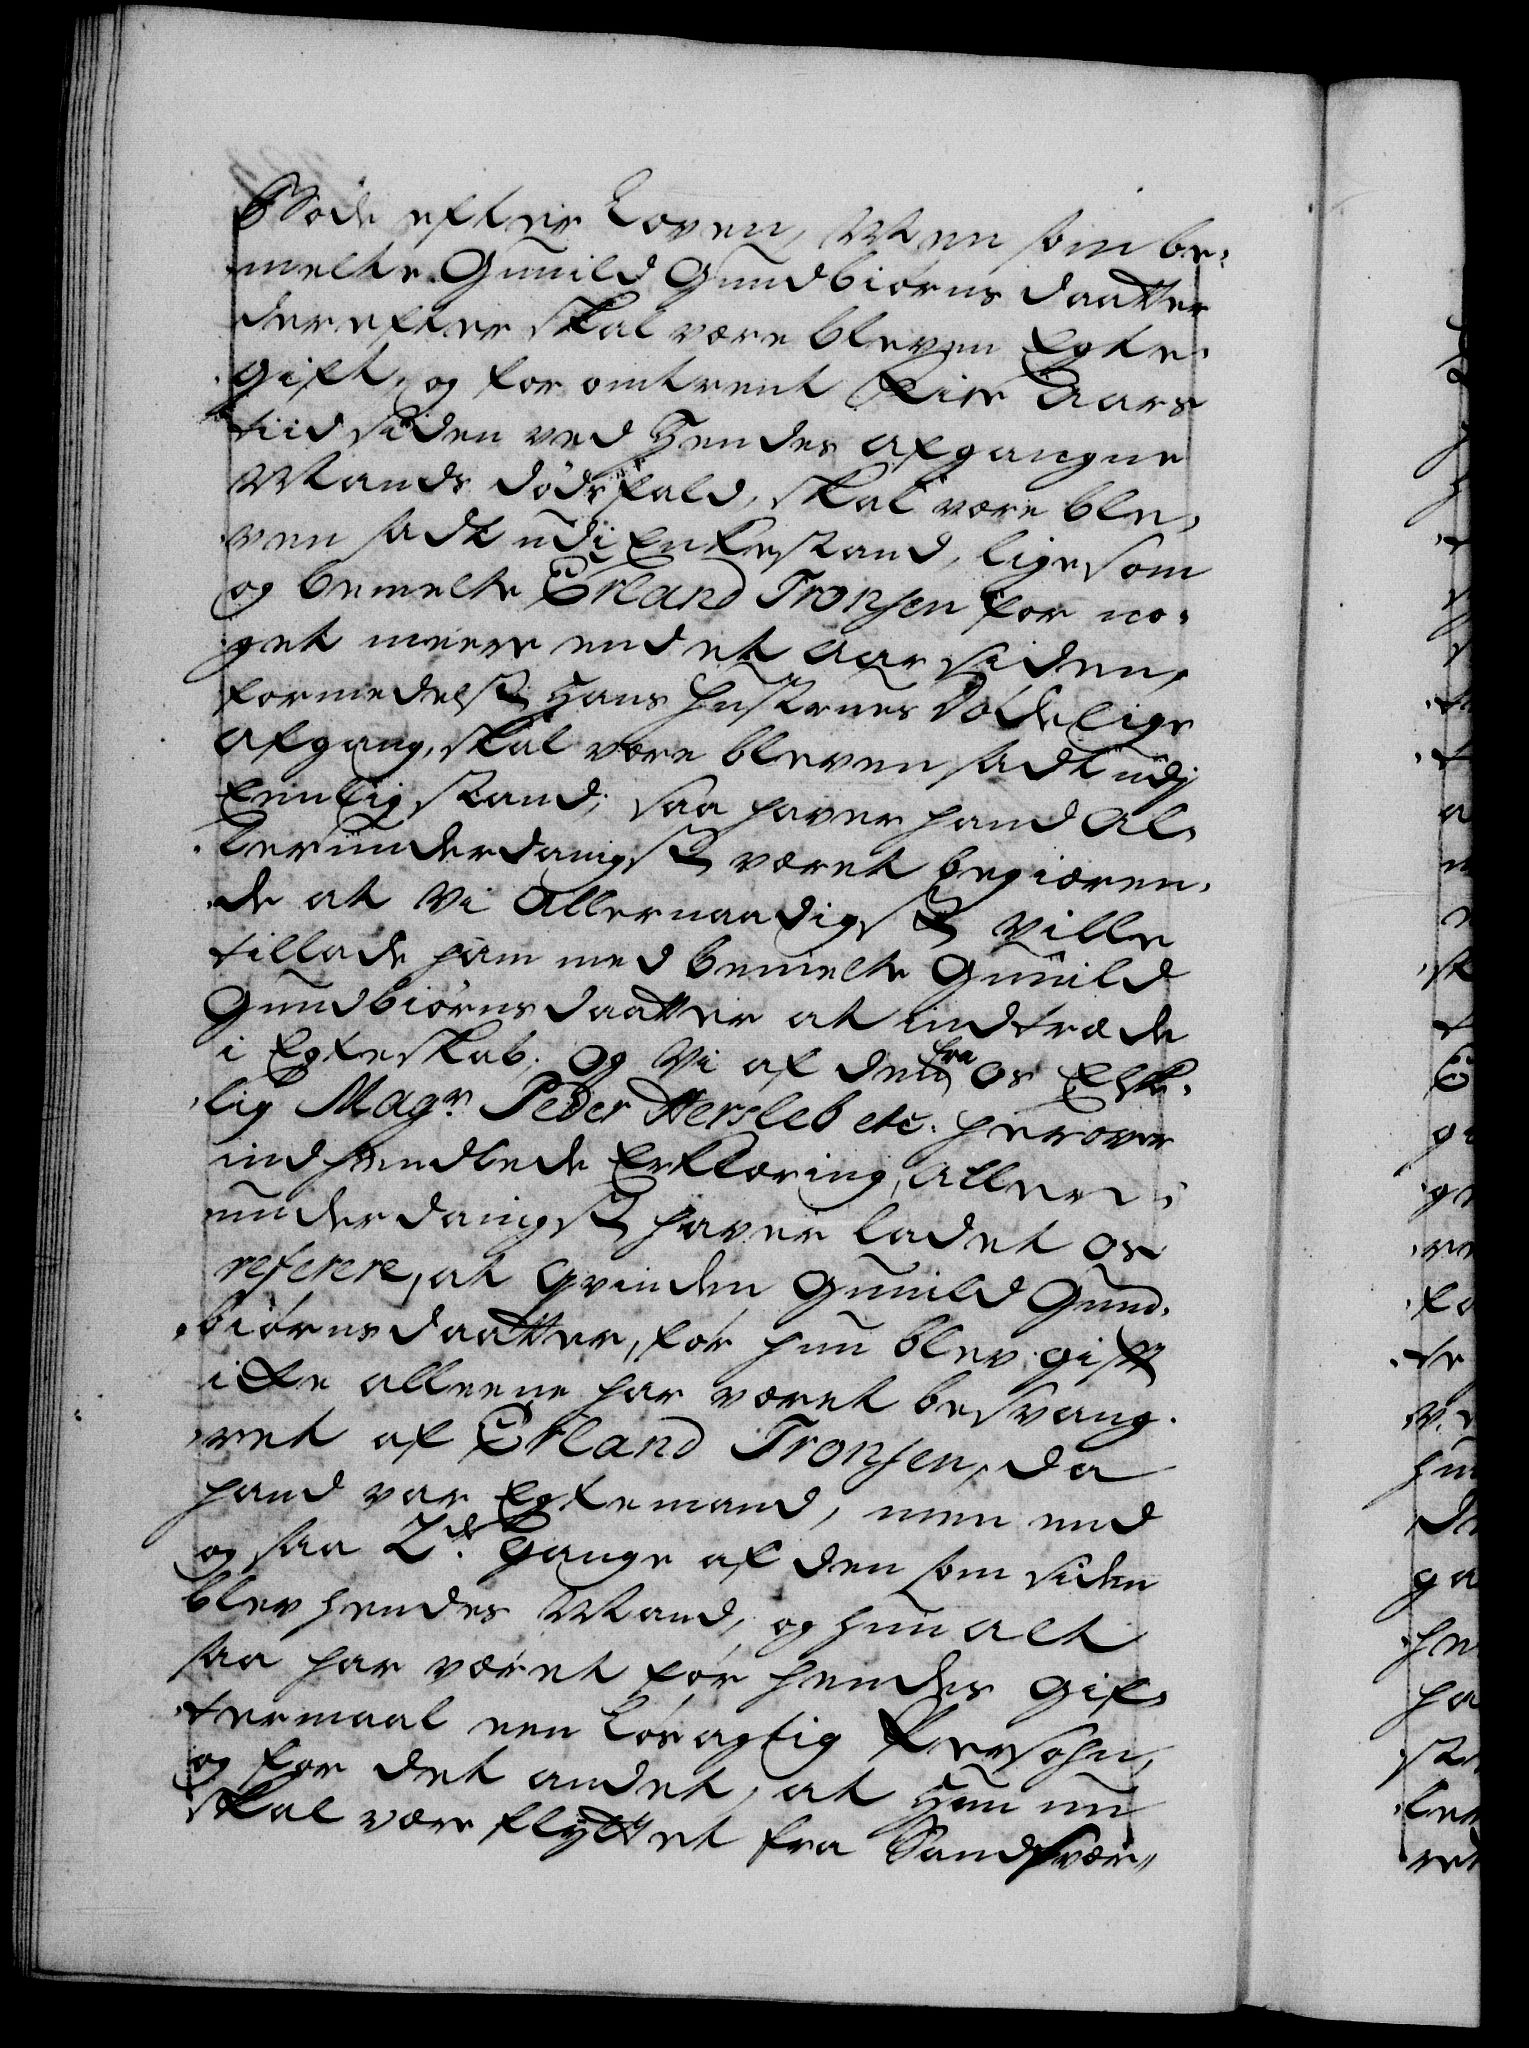 Bøde efter Loven, Men som be-
melte Gunild Gundbiørns daatter
derefter skal være bleven Egte-
gift, og for omtrent Fire Aars
tiid siden ved Hendes afgangne
Mands dødsfald, skal være ble-
ven sadt udi Enkestand, ligesom
og bemelte Erland Tronsen for no-
get meere end et Aar siden,
formedelst Hans Hustrues Dødelige
afgang, skal være bleven sadt udj
Eenlig stand; saa haver hand Al-
lerunderdanigst været begiæren-
de at Vi Allernaadigst Ville
tillade ham med bemelte Gunild
Gundbiørnsdaatter at indtræde
i Egteskab; og Vi af den fra Os Elske-
lig Magr. Peder Hersleb etc. herover
indhendtede Erklæring, aller-
underdanigst haver ladet Os
referere, at Qvinden Gunild Gund-
biørnsdaatter, før hun blev gift
ikke alleene har været besvang-
ret af Erland Tronsen, da
hand var Egtemand, men end
og saa 2de Gange af den som siden
blev hendes Mand, og hun alt
saa har været før hendes Gif-
termaal een Løsagtig Persohn,
og for det andet, at Hun nu
skal være flyttet fra Sandsvær